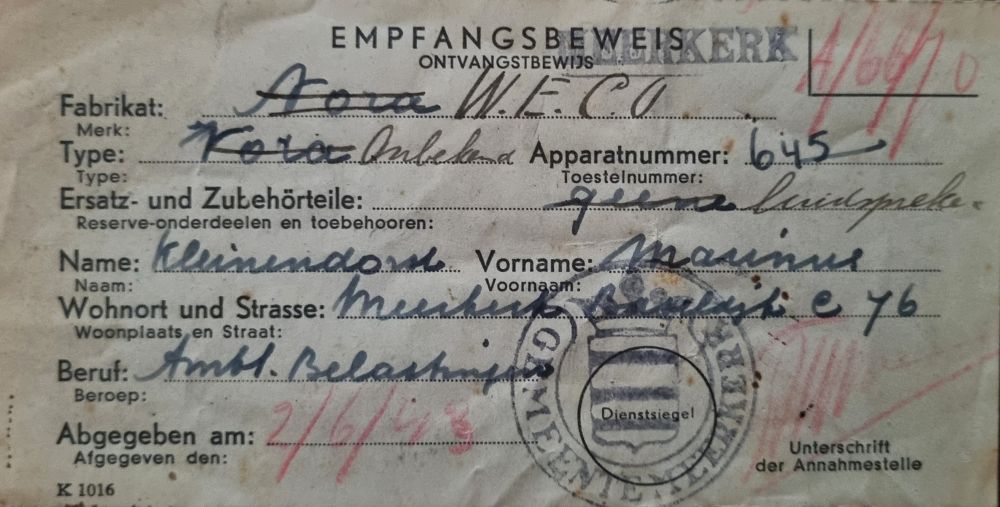 EMPFANGSBEWEIS
MEERKERK
ONTVANGSTBEWIJS
Fabrikat: Nora W.E.C.O
Merk:
Type: Nora Onbekend Apparatnummer: 645
Type: Toestelnummer:
Ersatz- und Zubehörteile: geene luidspreker
Reserve-onderdeelen en toebehooren:
Name: Kleinendorst Vorname: Marinus
Naam: Voornaam:
Wohnort und Strasse: Meerkerk C 76
Woonplaats en Straat:
Beruf: Ambt. Belastingen
Beroep:
Dienstsiegel
GEMEENTE MEERKERK
Abgegeben am: 2/6/43
Afgegeven den:
Unterschrift
der Annahmestelle
K 1016